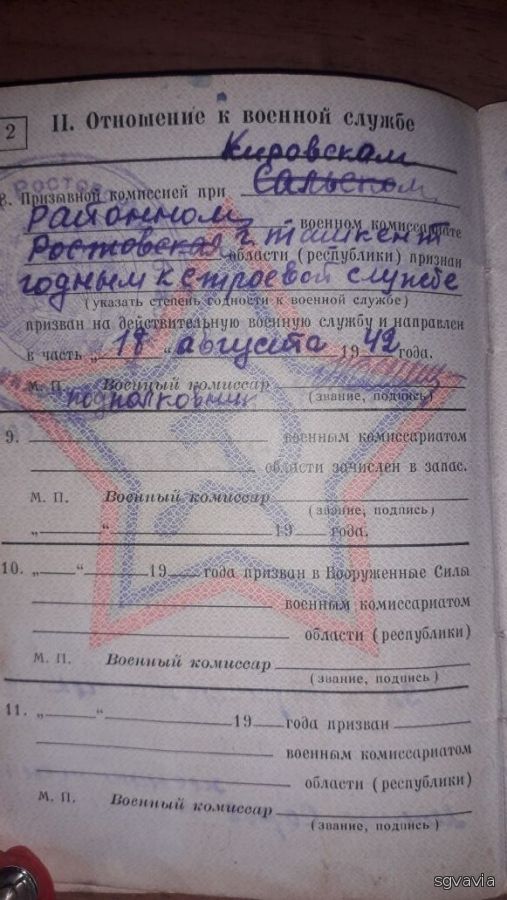 2
II. Отношение к военной службе
Кировском
8. Призывной комиссией при Сальском
Районном военном комиссариате
Ростовская г ташкент области (республики) признан
годным к строевой службе
(указать степень годности к военной службе)
призван на действительную военную службу и направлен
в часть „18“ августа 1942 года.
М. П. Военный комиссар
подполковник (звание, подпись)
9. военным комиссариатом
области зачислен в запас.
М. П. Военный комиссар
(звание, подпись)
„ “ 19 года.
10. „ “ 19 года призван в Вооруженные Силы
военным комиссариатом
области (республики)
М. П. Военный комиссар
(звание, подпись)
11. „ “ 19 года призван
военным комиссариатом
области (республики)
М. П. Военный комиссар
(звание, подпись)
sgvavia